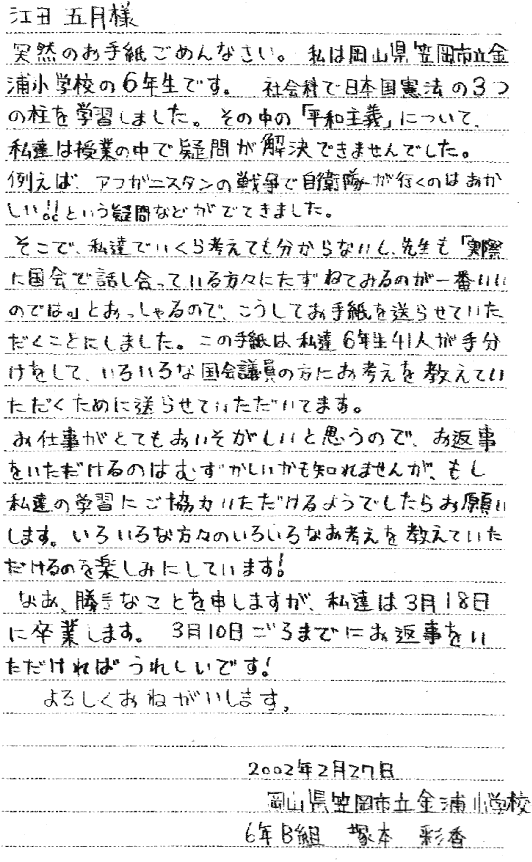 江田 五月様
突然のお手紙ごめんなさい。 私は岡山県笠岡市立金
浦小学校の6年生です。 社会科で日本国憲法の3つ
の柱を学習しました。その中の「平和主義」について、
私達は授業の中で疑問が解決できませんでした。
例えば、アフガニスタンの戦争で自衛隊が行くのはおか
しい!!という疑問などがでてきました。
そこで、私達でいくら考えても分からないし、先生も「実際
に国会で話し合っている方々にたずねてみるのが一番いい
のでは。」とおっしゃるので、こうしてお手紙を送らせていた
だくことにしました。この手紙は私達6年生41人が手分
けをして、いろいろな国会議員の方にお考えを教えてい
ただくために送らせていただいてます。
お仕事がとてもおいそがしいと思うので、お返事
をいただけるのはむずかしいかも知れませんが、もし
私達の学習にご協力いただけるようでしたらお願い
します。いろいろな方々のいろいろなお考えを教えていた
だけるのを楽しみにしています!
なお、勝手なことを申しますが、私達は3月18日
に卒業します。 3月10日ごろまでにお返事をい
ただければうれしいです!
よろしくおねがいします。
2002年2月27日
岡山県笠岡市立金浦小学校
6年B組 塚本 彩香